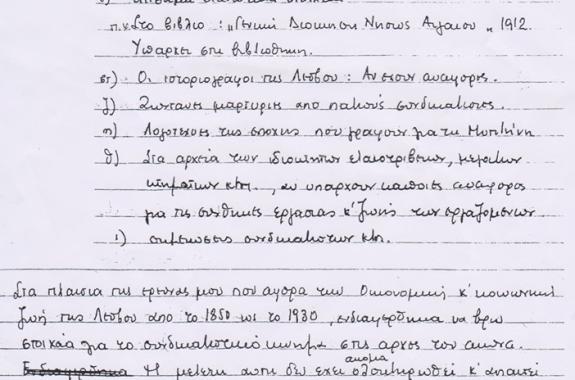 π.χ. Στο βιβλίο : „Γενική Διοικηση Νησος Αιγαιου „ 1912.
Υπαρχει στη βιβλιοθηκη.
στ) Οι ιστοριογραφοι της Λεσβου : Αν εχουν αναφορες.
ζ) Ζωντανες μαρτυριες απο παλιους συνδικαλιστες.
η) Λογοτεχνες της εποχης που γραφουν για τη Μυτιληνη
θ) Στα αρχεια των ιδιοκτητων ελαιοτριβειων, μεγαλων
κτηματιων κλπ., αν υπαρχουν καποιες αναφορες
για τις συνθηκες εργασιας κ' ζωης των εργαζομενων.
ι) σημειωσεις συνδικαλιστων κλπ.
Στα πλαισια της ερευνας μου που αφορα την Οικονομικη κ' κοινωνικη
ζωη της Λεσβου απο το 1850 ως το 1930, ενδιαφερθηκα να βρω
στοιχεια για το συνδικαλιστικο κινημα στις αρχες του αιωνα.
ακομα
Ενδιαφερθηκα Η μελετη αυτη δεν εχει ολοκληρωθει κ' απαιτει